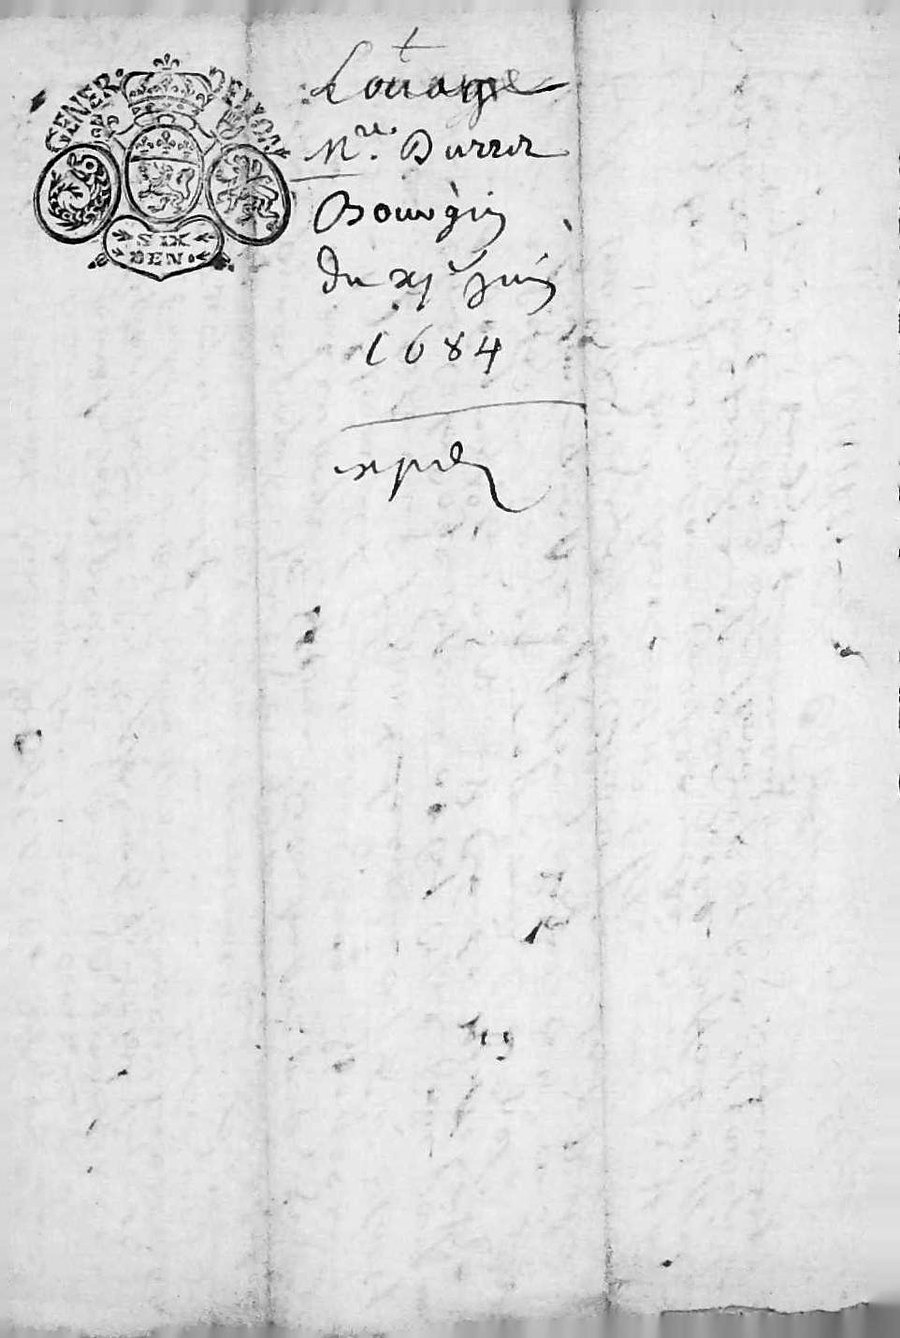 GENER. DE LYON
SIX
DEN.
Louage
Mre. Durret
Bourgin
du xje juin
1684
xpéd